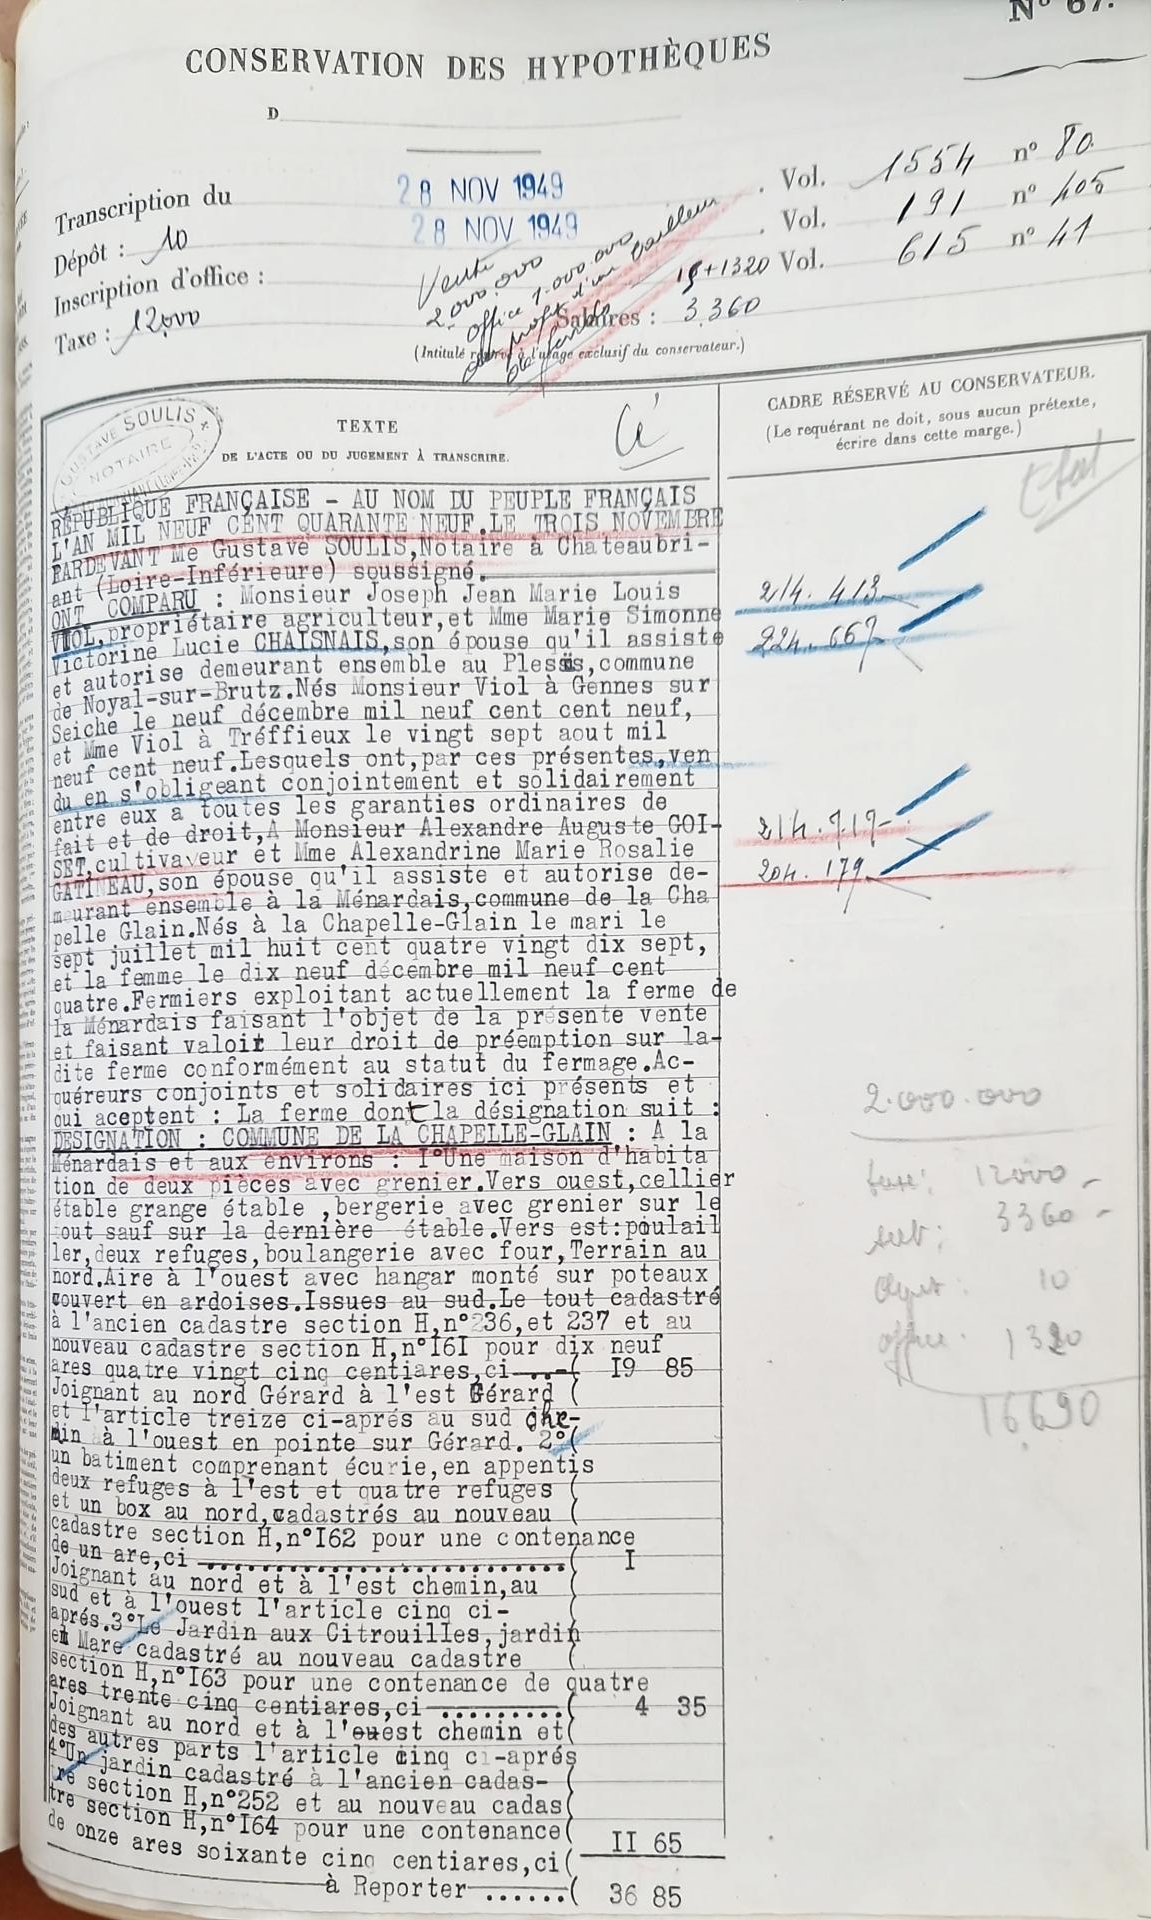 N° 67.
CONSERVATION DES HYPOTHÈQUES
D
Transcription du 28 NOV 1949 Vol. 1554 n° 80
Dépôt : 10 28 NOV 1949 Vol. 191 n° 405
Inscription d'office : 15+1320 Vol. 615 n° 41
Taxe : 12000 Salaires : 3.360
Vente
2.000.000
office 1.000.000
au profit d'un bailleur
de fonds
(Intitulé réservé à l'usage exclusif du conservateur.)
GUSTAVE SOULIS
NOTAIRE
TEXTE
DE L'ACTE OU DU JUGEMENT À TRANSCRIRE.
CADRE RÉSERVÉ AU CONSERVATEUR.
(Le requérant ne doit, sous aucun prétexte,
écrire dans cette marge.)
Etat
RÉPUBLIQUE FRANÇAISE - AU NOM DU PEUPLE FRANÇAIS
L'AN MIL NEUF CENT QUARANTE NEUF.LE TROIS NOVEMBRE
PARDEVANT Me Gustave SOULIS,Notaire à Chateaubri-
ant (Loire-Inférieure) soussigné.
ONT COMPARU : Monsieur Joseph Jean Marie Louis
VIOL,propriétaire agriculteur,et Mme Marie Simonne
Victorine Lucie CHAISNAIS,son épouse qu'il assiste
et autorise demeurant ensemble au Plessis,commune
de Noyal-sur-Brutz.Nés Monsieur Viol à Gennes sur
Seiche le neuf décembre mil neuf cent cent neuf,
et Mme Viol à Tréffieux le vingt sept aout mil
neuf cent neuf.Lesquels ont,par ces présentes,ven
du en s'obligeant conjointement et solidairement
entre eux a toutes les garanties ordinaires de
fait et de droit,A Monsieur Alexandre Auguste GOI-
SET,cultivaveur et Mme Alexandrine Marie Rosalie
GATINEAU,son épouse qu'il assiste et autorise de-
meurant ensemble à la Ménardais,commune de la Cha
pelle Glain.Nés à la Chapelle-Glain le mari le
sept juillet mil huit cent quatre vingt dix sept,
et la femme le dix neuf décembre mil neuf cent
quatre.Fermiers exploitant actuellement la ferme de
la Ménardais faisant l'objet de la présente vente
et faisant valoir leur droit de préemption sur la-
dite ferme conformément au statut du fermage.Ac-
quéreurs conjoints et solidaires ici présents et
qui aceptent : La ferme dont la désignation suit :
DESIGNATION : COMMUNE DE LA CHAPELLE-GLAIN : A la
Ménardais et aux environs : I°Une maison d'habita
tion de deux pièces avec grenier.Vers ouest,cellier
étable grange étable ,bergerie avec grenier sur le
tout sauf sur la dernière étable.Vers est:poulail
ler,deux refuges,boulangerie avec four,Terrain au
nord.Aire à l'ouest avec hangar monté sur poteaux
couvert en ardoises.Issues au sud.Le tout cadastré
à l'ancien cadastre section H,n°236,et 237 et au
nouveau cadastre section H,n°I6I pour dix neuf
ares quatre vingt cinq centiares,ci---..-( I9 85
Joignant au nord Gérard à l'est Gérard (
et l'article treize ci-aprés au sud che-
min à l'ouest en pointe sur Gérard. 2°(
un batiment comprenant écurie,en appentis
deux refuges à l'est et quatre refuges (
et un box au nord,cadastrés au nouveau (
cadastre section H,n°I62 pour une contenance
de un are,ci ........................( I
Joignant au nord et à l'est chemin,au (
sud et à l'ouest l'article cinq ci- (
aprés.3°Le Jardin aux Citrouilles,jardin
et Mare cadastré au nouveau cadastre (
section H,n°I63 pour une contenance de quatre
ares trente cinq centiares,ci-.........( 4 35
Joignant au nord et à l'ouest chemin et(
des autres parts l'article cinq ci-aprés
4°Un jardin cadastré à l'ancien cadas- (
tre section H,n°252 et au nouveau cadas(
tre section H,n°I64 pour une contenance(
de onze ares soixante cinq centiares,ci( II 65
à Reporter-......( 36 85
214. 413
224. 667
214. 717
204. 179
2.000.000
taxe : 12000
sal : 3360
depot : 10
office : 1320
16690